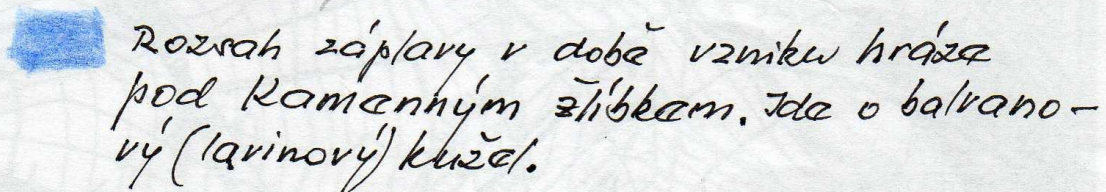 Rozsah záplavy v době vzniku hráze
pod Kamenným žlíbkem. Jde o balvano-
vý (lavinový) kužel.